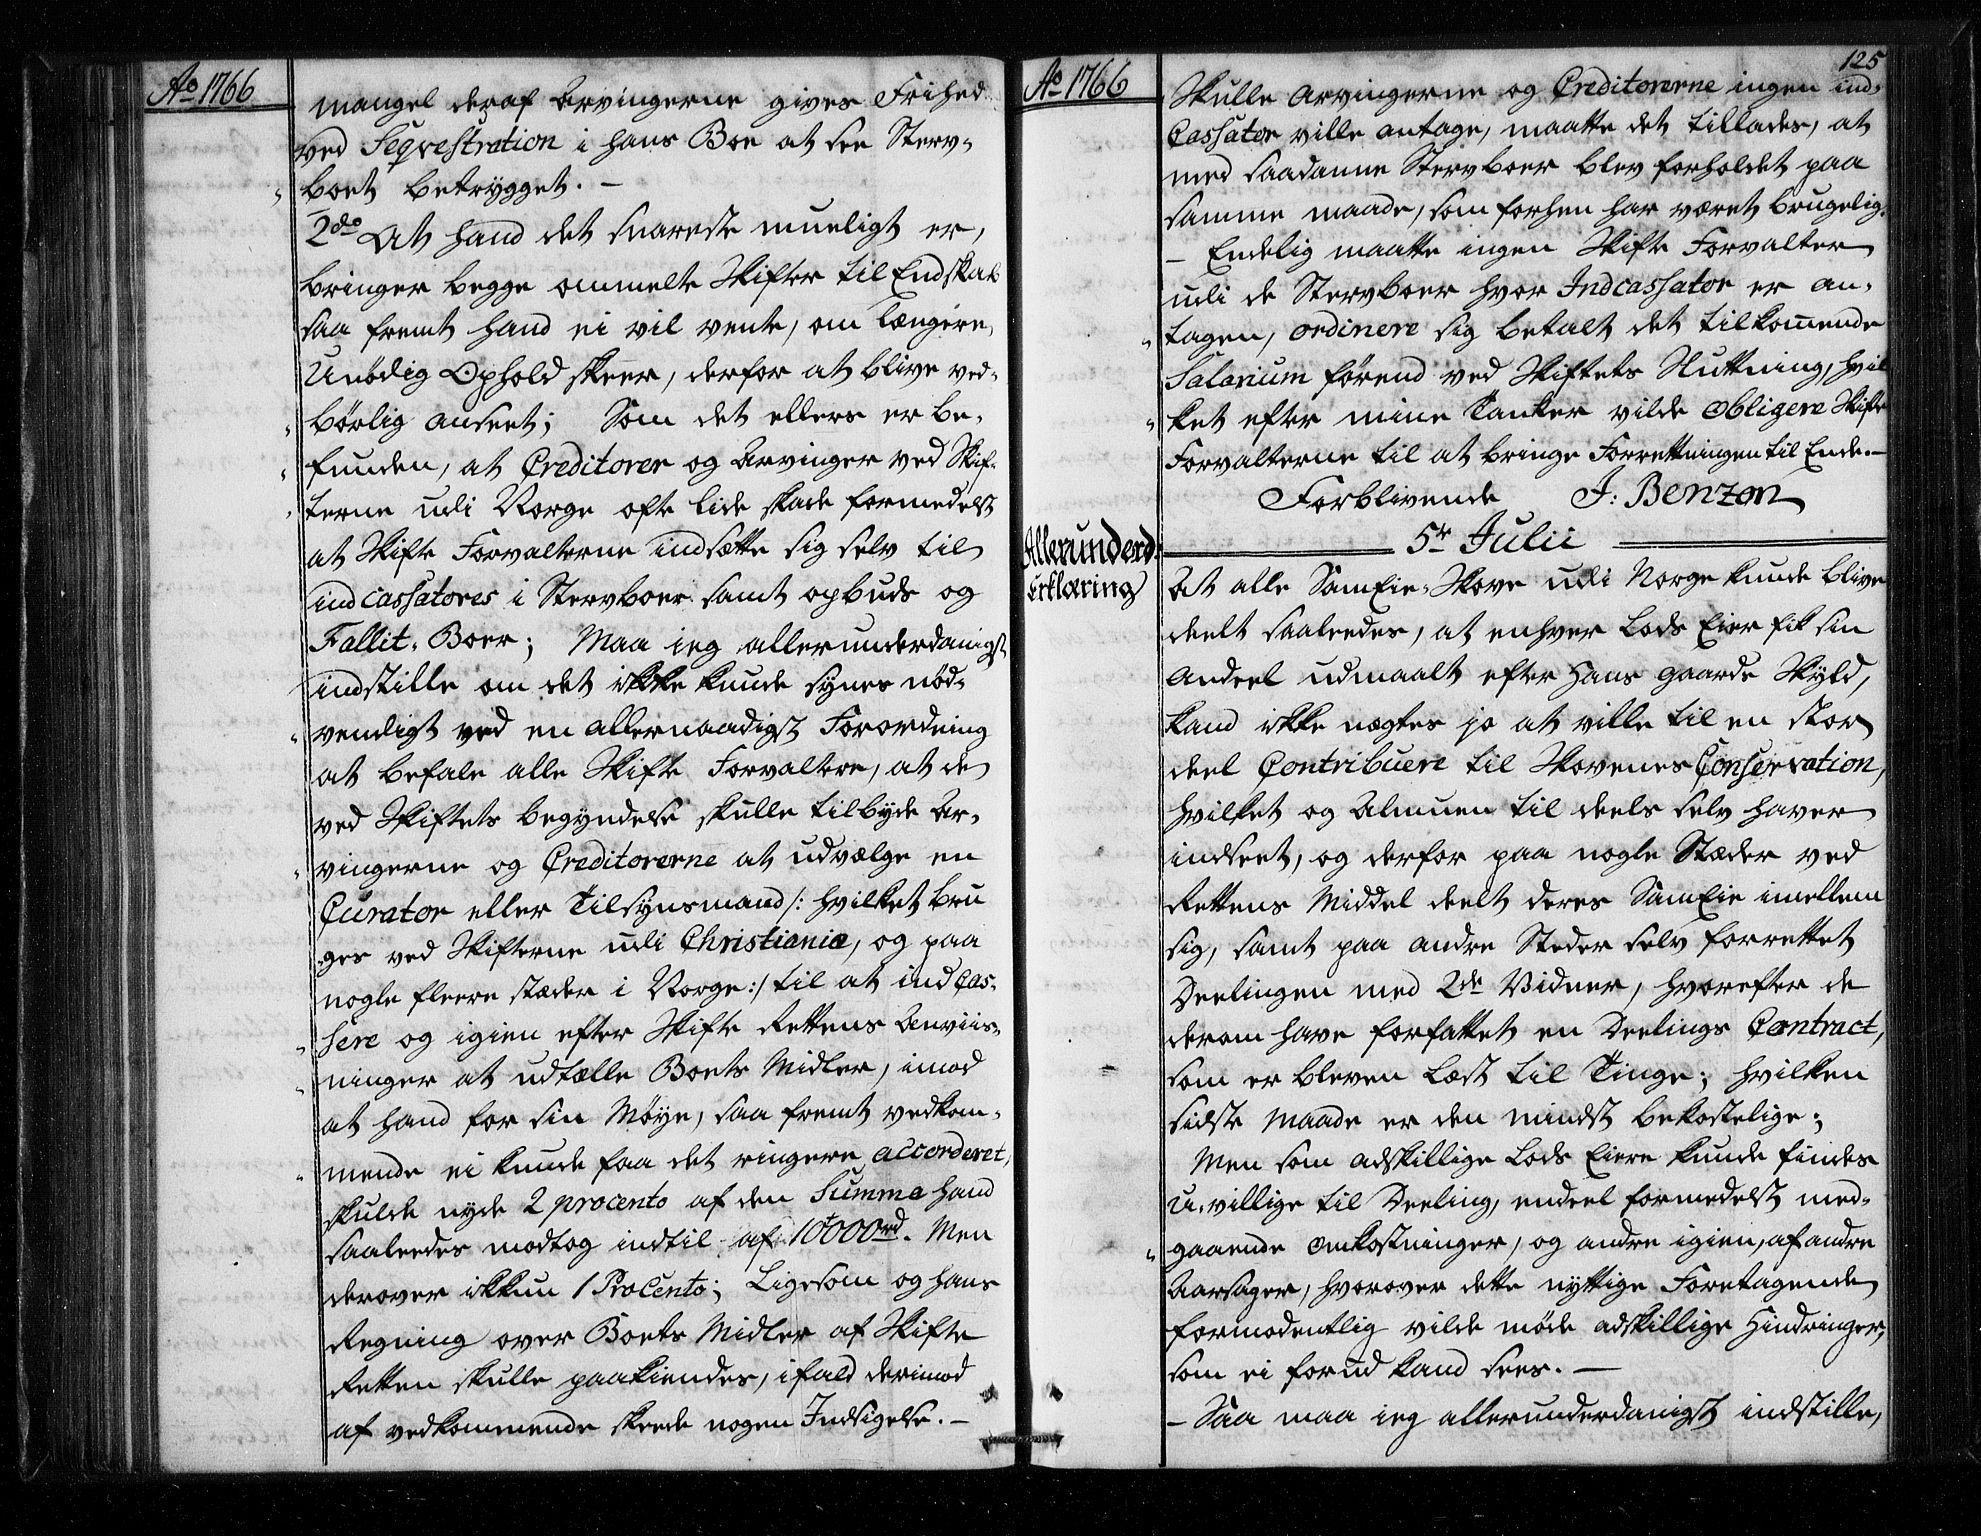 Ao 1766
mangel deraf Arvingerne gives Frihed
ved Seqvestration i hans Boe at see Sterv-
boet betrygget. —
2do At hand det snareste mueligt er,
bringer begge ommelte Skifter til Endskab
saa fremt hand ei vil vente, om længere
Unödig Ophold skeer, derfor at blive ved-
börlig anseet; Som det ellers er be-
funden, at Creditorer og Arvinger ved Skif-
terne udi Norge ofte lide skade formedelst
at Skifte Forvalterne indsætte sig selv til
indcassatores i Stervboer samt opbuds og
Fallit-Boer; Maa ieg allerunderdanigst
indstille om det ikke kunde synes nöd-
vendigt ved en allernaadigst Forordning
at befale alle Skifte Forvaltere, at de
ved Skiftets begyndelse skulle tilbyde Ar-
vingerne og Creditorerne at udvælge en
Curator eller Tilsynsmand /: hvilket bru
ges ved Skifterne udi Christiania, og paa
nogle fleere stæder i Norge :/ til at indCas-
sere og igien efter Skifte Rettens Anviis-
ninger at udtælle Boets Midler, imod
at hand for sin Möye, saa fremt vedkom-
mende ei kunde faa det ringere accorderet,
skulde nyde 2 procento af den Summa hand
saaledes modtog indtil af 10000 rd. Men
derover ikkun 1 ProCento; Ligesom og hans
Regning over Boets Midler af Skifte
Retten skulle paakiendes, ifald derimod
af vedkommende skeede nogen Indsigelse. —
Ao 1766
125
Skulle Arvingerne og Creditorerne ingen ind-
Cassator ville antage, maatte det tillades, at
med saadanne Stervboer blev forholdet paa
samme maade, som forhen har været brugelig.
— Endelig maatte ingen Skifte Forvalter
udi de Stervboer hvor Indcassator er an-
tagen, ordinere sig betalt det tilkommende
Salarium förend ved Skiftets Sluttning, hvil
ket efter mine Tanker vilde obligere Skifte
Forvalterne til at bringe Forrettningen til Ende. —
Forblivende J: Benzon
5te Julii
Allerunderd:
Erklæring
At alle SamEie-Skove udi Norge kunde blive
deelt saaledes, at enhver Lods Eier fik sin
Andeel udmaalt efter Hans Gaards Skyld,
kand ikke nægtes jo at ville til en stor
deel Contribuere til Skovenes Conservation,
hvilket og Almuen til deels selv haver
indseet, og derfor paa nogle Stæder ved
Rettens Middel deelt deres SamEie imellem
sig, samt paa andre Steder selv forrettet
Deelingen med 2de Vidner, hvorefter de
derom have forfattet en Deelings Contract,
som er bleven Læst til Tinge; hvilken
sidste Maade er den mindst bekostelige;
Men som adskillige Lods Eiere kunde findes
U-villige til Deeling, endeel formedelst med-
gaaende Omkostninger, og andre igien, af andre
Aarsager, hvorover dette nyttige Foretagende
formodentlig vilde möde adskillige Hindringer,
som ei forud kand sees. —
— Saa maa ieg allerunderdanigst indstille,